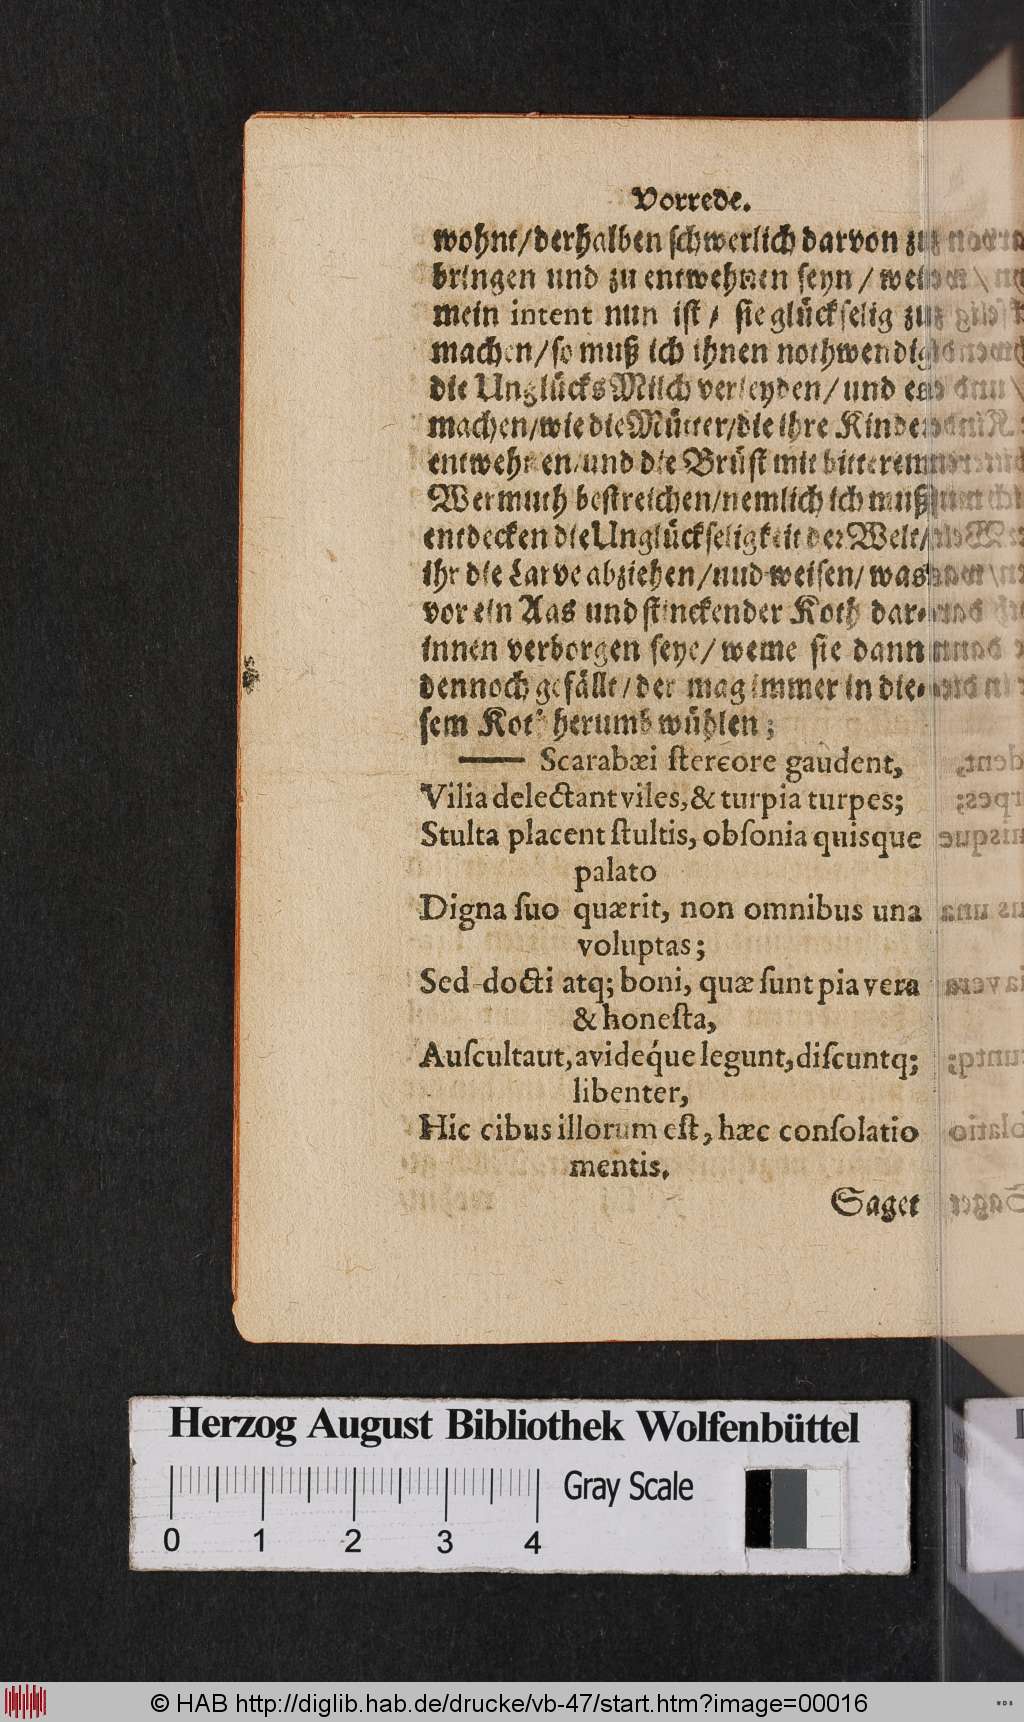 Vorrede.
wohnt/derhalben schwerlich darvon zu
bringen und zu entwehnen seyn / weilen
mein intent nun ist / sie glückselig zu
machen/so muß ich ihnen nothwendig
die Unglücks Milch verleyden/und es
machen/wie die Mütter/die ihre Kinder
entwehnen/und die Brüst mit bitterem
Wermuth bestreichen/nemlich ich muß
entdecken die Unglückseligkeit der Welt/
ihr die Larve abziehen/nud weisen/was
vor ein Aas und stinckender Koth dar-
innen verborgen seye/weme sie dann
dennoch gefällt/der mag immer in die-
sem Koth herumb wühlen;
—— Scarabæi stercore gaudent,
Vilia delectant viles,& turpia turpes;
Stulta placent ſtultis, obſonia quisque
palato
Digna ſuo quærit, non omnibus una
voluptas;
Sed docti atq; boni, quæ ſunt pia vera
& honeſta,
Auſcultaut,avideq́ue legunt,diſcuntq;
libenter,
Hic cibus illorum eſt, hæc conſolatio
mentis.
Saget
Herzog August Bibliothek Wolfenbüttel
Gray Scale
0 1 2 3 4
© HAB http://diglib.hab.de/drucke/vb-47/start.htm?image=00016
WDB